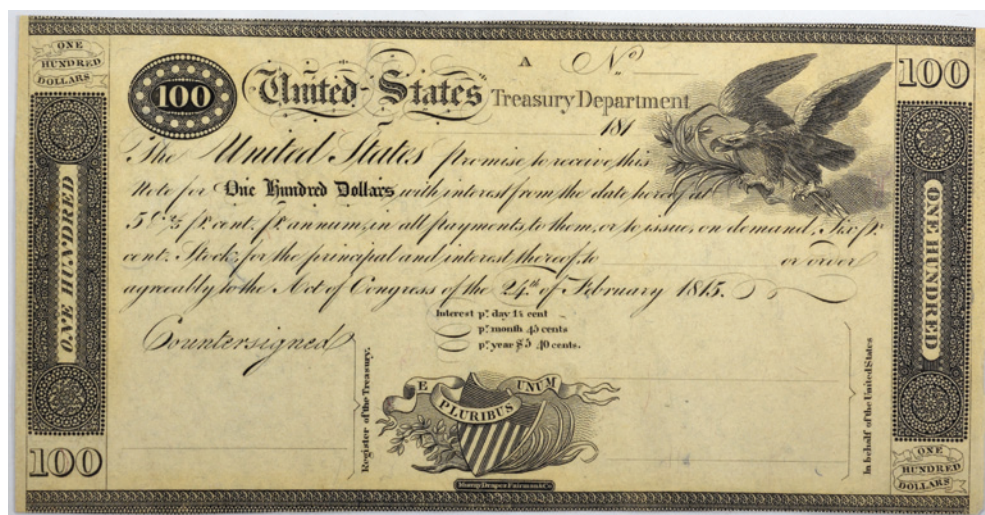 ONE
HUNDRED
DOLLARS
A No
100
United States Treasury Department
100
181
The United States promise to receive this
Note for One Hundred Dollars with interest from the date hereof at
5 2/5 pr. cent. pr. annum, in all payments to them, or to issue, on demand, Six pr.
cent. Stock, for the principal and interest thereof, to or order
agreeably to the Act of Congress of the 24th of February 1815.
Interest pr. day 1½ cent
pr. month 45 cents
pr. year $5 .40 cents.
Countersigned
Register of the Treasury.
In behalf of the United States
E PLURIBUS UNUM
Murray Draper Fairman & Co
ONE HUNDRED
ONE HUNDRED
100
ONE
HUNDRED
DOLLARS